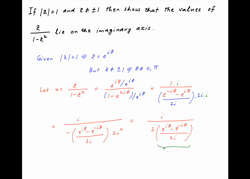 If |z|=1 and z ≠ ±1 then show that the values of
z/(1-z²) lie on the imaginary axis.
Given |z|=1 ⇒ z = e^{iθ}
But z ≠ ±1 ⇒ θ ≠ 0, π
Let w = z/(1-z²) = (e^{iθ}/e^{iθ})/((1-e^{2iθ})/e^{iθ}) = 1·i/(((e^{-iθ}-e^{iθ})/2i)·2i·i)
= i/(-((e^{iθ}-e^{-iθ})/2i)·2i²) = i/(2((e^{iθ}-e^{-iθ})/2i))